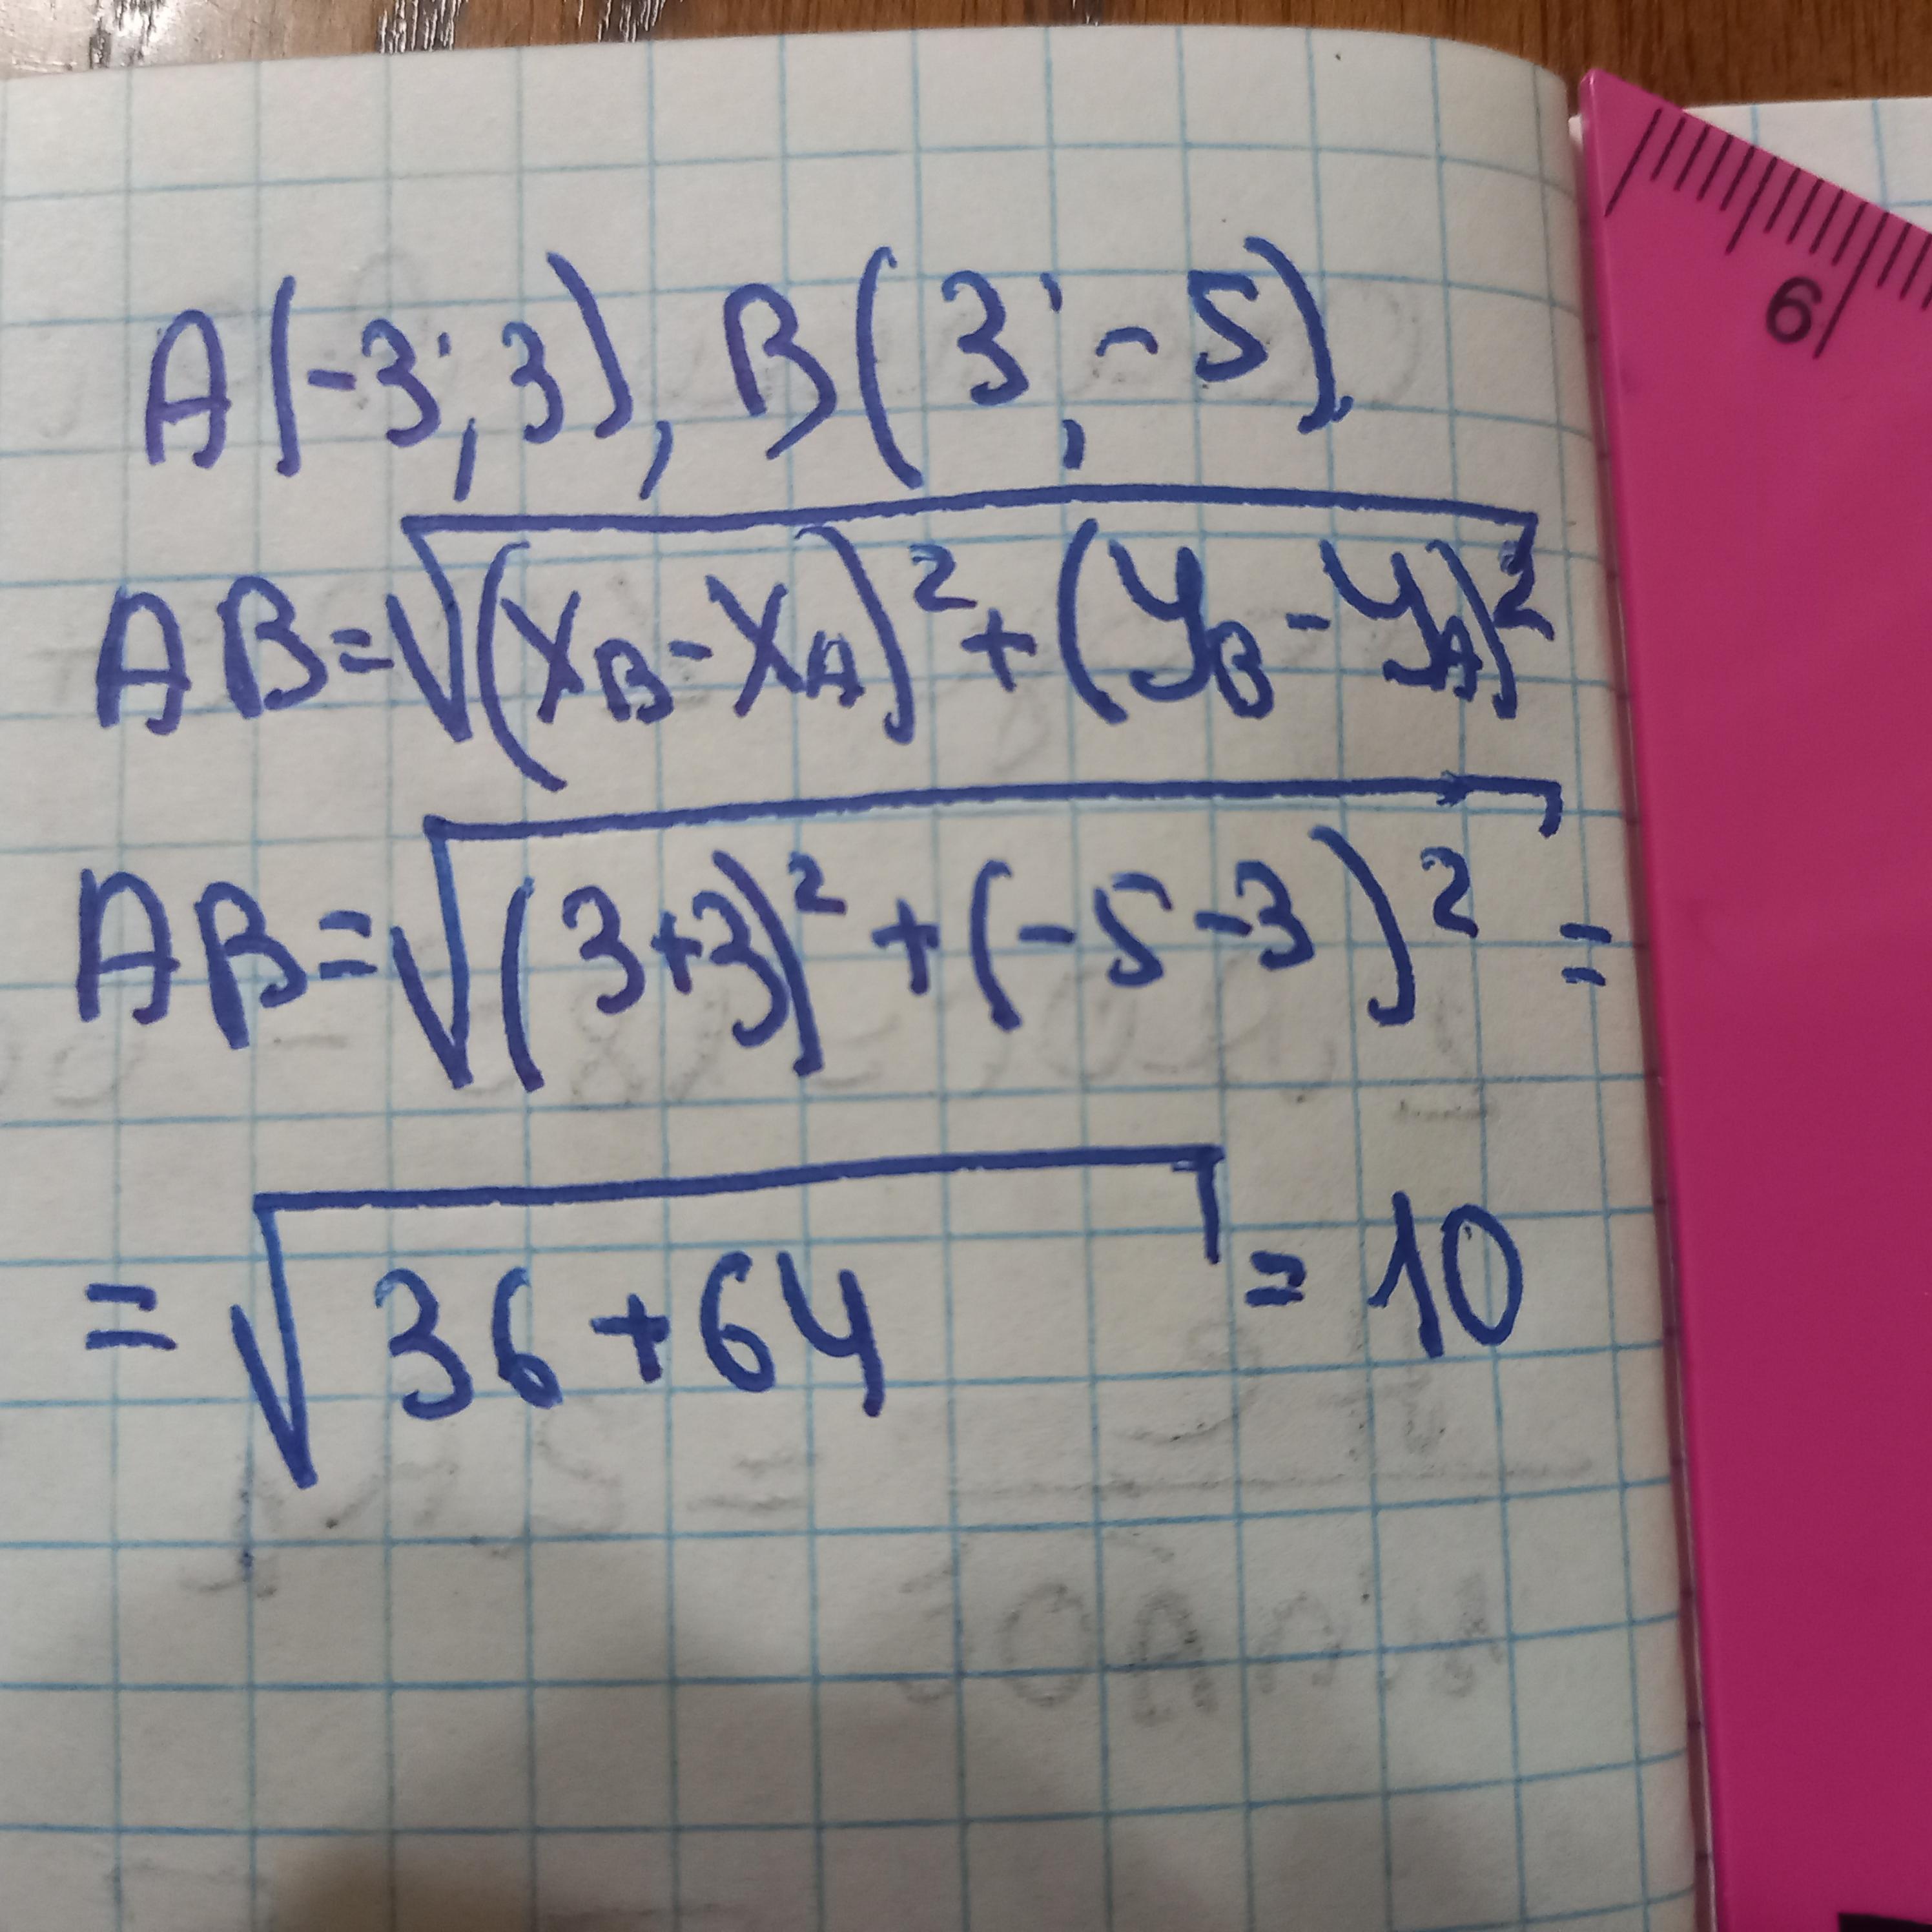 A(-3;3), B(3;-5).
AB=√(x_B-x_A)²+(y_B-y_A)²
AB=√(3+3)²+(-5-3)²=
=√36+64=10
6